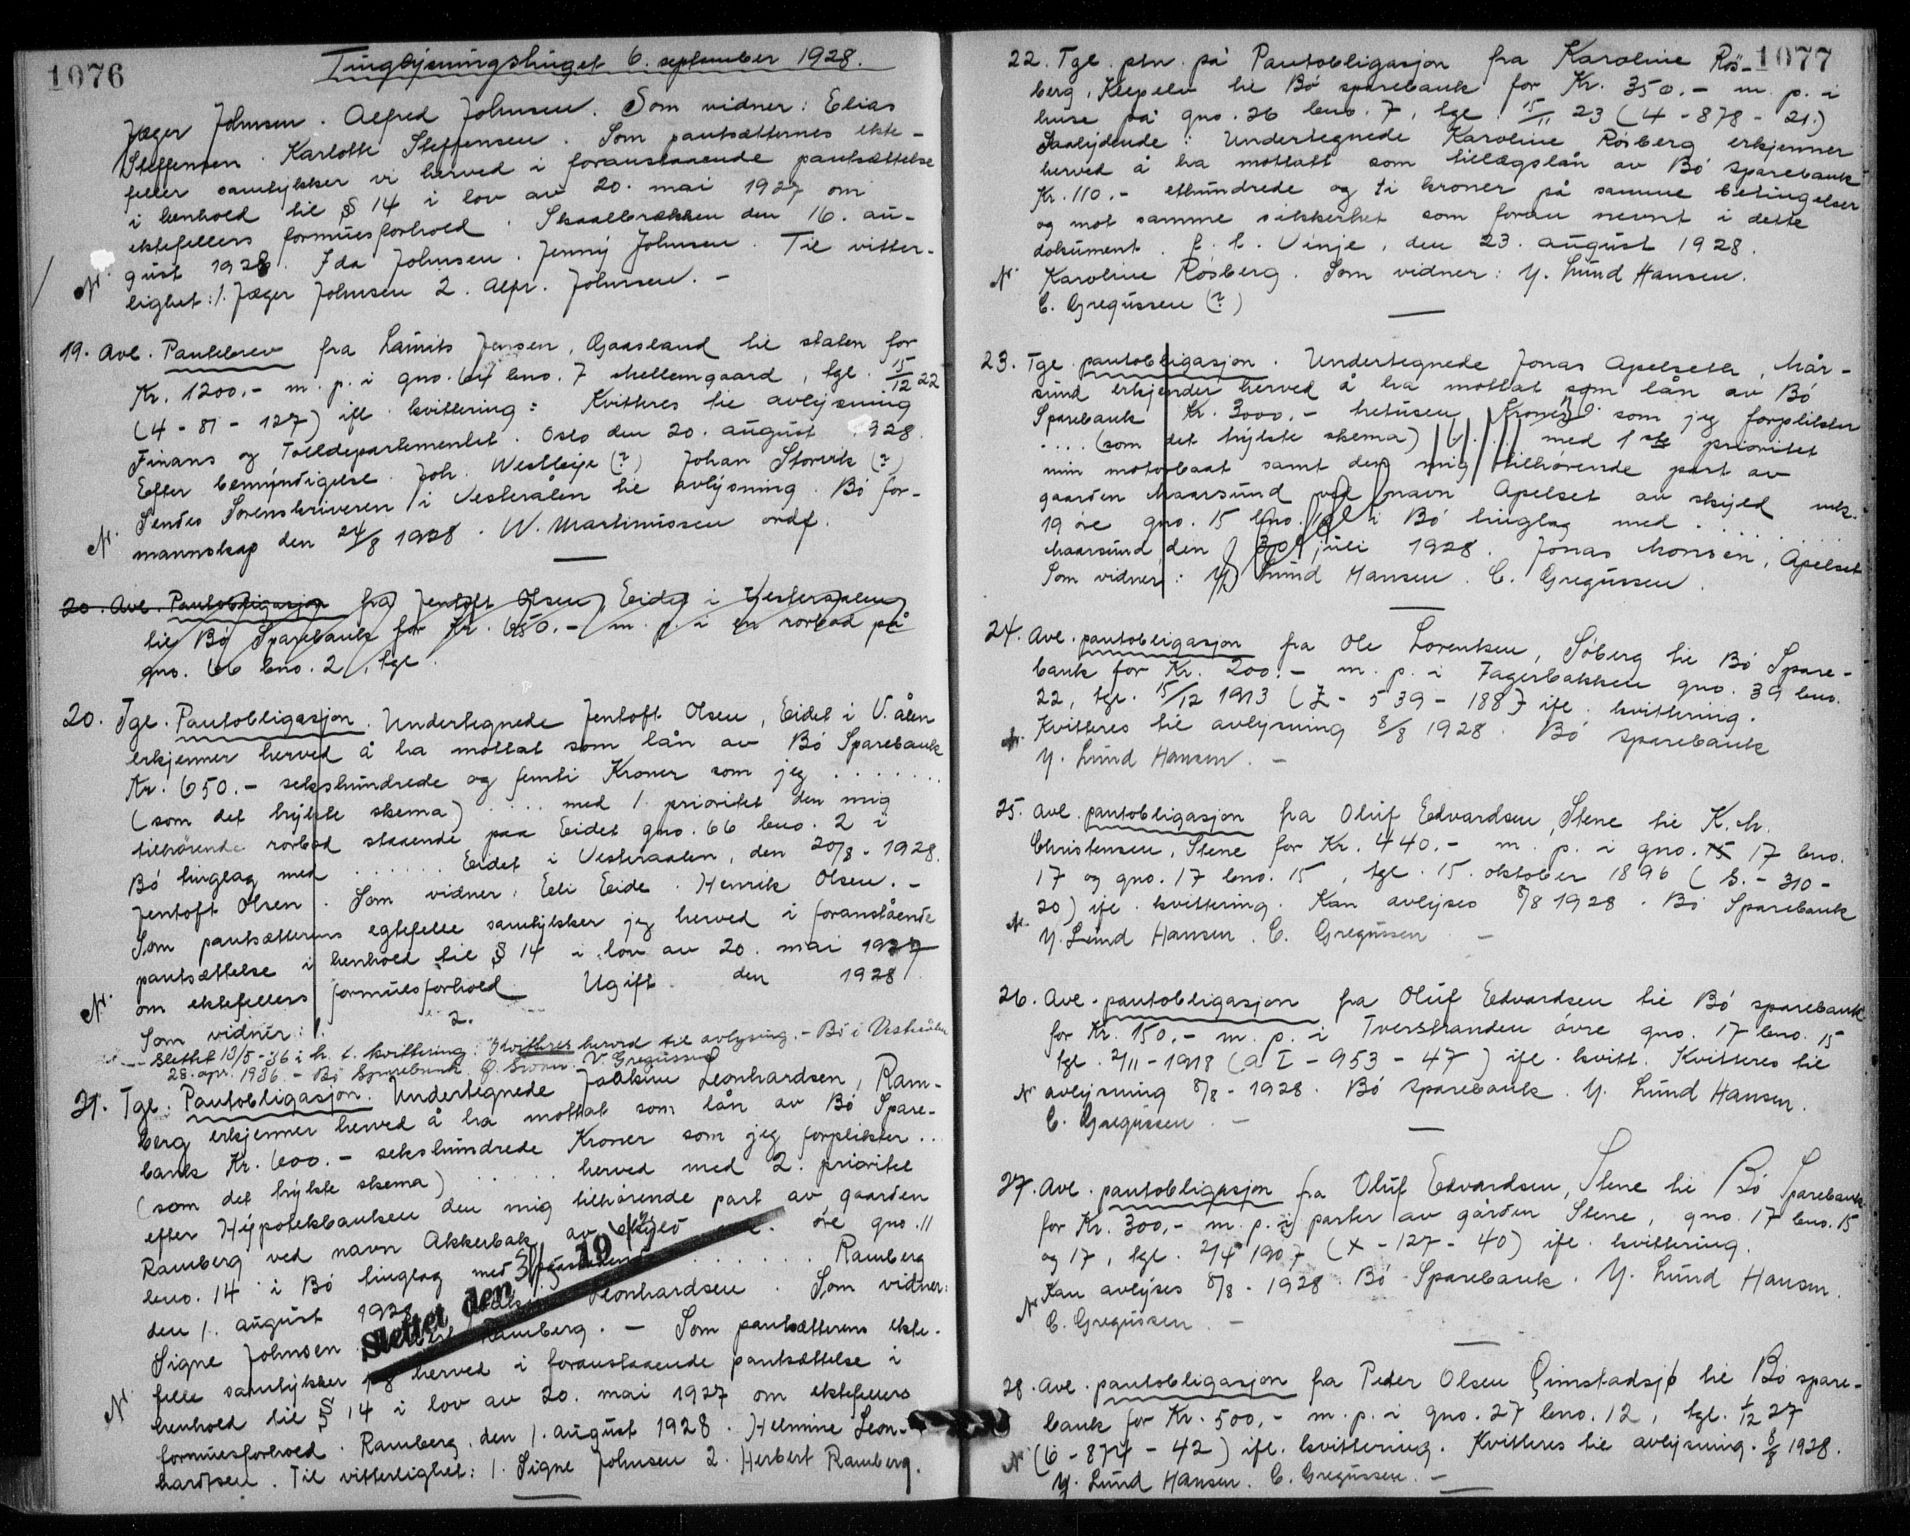 1076
Tinglysningstinget 6. september 1928.
Jæger Johnsen. Alfred Johnsen. Som vidner: Elias
Steffensen. Karlotte Steffensen. Som pantsætternes ekte-
feller samtykker vi herved i foranstaaende pantsættelse
i henhold til § 14 i lov av 20. mai 1927 om
ektefellers formuesforhold. Skaalbrækken den 16. au-
gust 1928. Ida Johnsen. Jenny Johnsen. Til vitter-
N. lighet: 1. Jæger Johnsen 2. Alfr. Johnsen. -
19. Avl. Pantebrev fra Laurits Jensen, Gaasland til staten for
Kr. 1200.- m. p. i gno. 64 bno. 7 Mellemgaard, tgl. 15/12 22
(4 - 81 - 127) ifl. kvittering: Kvitteres til avlysning
Finans og Tolldepartementet. Oslo den 20. august 1928.
Efter bemyndigelse. Joh. (?) Johan Storvik (?)
Sendes Sorenskriveren i Vesterålen til avlysning. Bø for-
N. mannskap den 24/8 1928. W. Martinussen ordf.
20. Avl. Pantobligasjon fra Jentoft Olsen, Eidet i Vesteraalen
til Bø Sparebank for Kr. 650.- m. p. i en rorbod på
gno. 66 bno. 2, tgl.
20. Tgl. Pantobligasjon. Undertegnede Jentoft Olsen, Eidet i V.ålen
erkjenner herved å ha mottat som lån av Bø Sparebank
Kr. 650.- sekshundrede og femti Kroner som jeg .......
(som det trykte skema) .... med 1. prioritet den mig
tilhørende rorbod staaende paa Eidet gno. 66 bno. 2 i
Bø tinglag med ...... Eidet i Vesteraalen, den 20/8 - 1928.
Jentoft Olsen. Som vidner: Eli Eide. Henrik Olsen. -
Som pantsætterens egtefelle samtykker jeg herved i foranstående
pantsættelse i henhold til § 14 i lov av 20. mai 1927
N. om ektefellers formuesforhold Ugift. den 1928
Som vidner: 1. 2.
Slettet 13/5-36 i h. t. kvittering: Kvitteres herved til avlysing. - Bø i Vesterålen
28. apr. 1936. - Bø Sparebank. V. Gregussen
21. Tgl. Pantobligasjon. Undertegnede Joakim Leonhardsen, Ram-
berg erkjenner herved å ha mottat som lån av Bø Spare-
bank Kr. 600.- sekshundrede Kroner som jeg forplikter ..
(som det trykte skema) ...... herved med 2. prioritet
efter Hypotekbanken den mig tilhørende part av gaarden
Ramberg ved navn Akkerbak, av skyld øre gno. 11
bno. 14 i Bø tinglag med ...... Ramberg
den 1. august 1928. Joakim Leonhardsen. Som vidner:
Slettet den 19
Signe Johnsen Ramberg. - Som pantsætterens ekte-
felle samtykker jeg herved i foranstaaende pantsættelse i
N henhold til § 14 i lov av 20. mai 1927 om ektefellers
formuesforhold. Ramberg, den 1. august 1928. Helmine Leon-
hardsen. Til vitterlighet: 1. Signe Johnsen 2. Herbert Ramberg.
1077
22. Tgl. ptn. på Pantobligasjon fra Karoline Røs-
berg, Klepelv til Bø sparebank for Kr. 350.- m. p. i
huse på gno. 26 bno. 7, tgl. 15/11 23 (4 - 878 - 21.)
Saalydende: Undertegnede Karoline Røsberg erkjenner
herved å ha mottatt som tillægslån av Bø sparebank
Kr. 110.- ethundrede og ti kroner på samme betingelser
og mot samme sikkerhet som foran nevnt i dette
dokument. p. t. Vinje, den 23. august 1928.
N. Karoline Røsberg. Som vidner: Y. Lund Hansen.
C. Gregussen (?)
23. Tgl. pantobligasjon. Undertegnede Jonas Apelseth, Mår-
sund erkjender herved å ha mottat som lån av Bø
Sparebank Kr. 3000.- tretusen Kroner som jeg forplikter
.... (som det trykte skema) .... med 1ste prioritet
min motorbaat samt den mig tilhørende part av
gaarden Maarsund ved navn Apelset av skyld mk.
19 øre gno. 15 bno. i Bø tinglag med ......
Maarsund den 30 juli 1928. Jonas Monsen, Apelset
Som vidner: Y. Lund Hansen. C. Gregussen.
24. Avl. pantobligasjon fra Ole Lorentsen, Søberg til Bø Spare-
bank for Kr. 200.- m. p. i Fagerbakken gno. 39 bno.
22, tgl. 15/12 1913 (Z - 539 - 188) ifl. kvittering.
N. Kvitteres til avlysning 8/8 1928. Bø sparebank
Y. Lund Hansen. -
25. Avl. pantobligasjon fra Oluf Edvardsen, Stene til K. M.
Christensen, Stene for Kr. 440.- m. p. i gno. 17 bno.
17 og gno. 17 bno. 15, tgl. 15. oktober 1896 (S. - 310 -
20) ifl. kvittering. Kan avlyses 8/8 1928. Bø Sparebank
N. Y. Lund Hansen. C. Gregussen -
26. Avl. pantobligasjon fra Oluf Edvardsen til Bø sparebank
for Kr. 150.- m. p. i Tverstranden øvre gno. 17 bno. 15
tgl. 2/11 - 1918 (a I - 953 - 47) ifl. kvitt. Kvitteres til
N avlysning 8/8 - 1928. Bø sparebank. Y. Lund Hansen.
C. Gregussen. -
27. Avl. pantobligasjon fra Oluf Edvardsen, Stene til Bø Sparebank
for Kr. 300.- m. p. i parter av gården Stene, gno. 17 bno. 15
og 17, tgl. 2/4 1907 (X - 127 - 40) ifl. kvittering.
N Kan avlyses 8/8 - 1928. Bø Sparebank. Y. Lund Hansen.
C. Gregussen. -
28. Avl. pantobligasjon fra Peder Olsen Gimstadsjø til Bø spare-
bank for Kr. 500.- m. p. i gno. 27 bno. 12, tgl. 1/12 27
N (6 - 874 - 42) ifl. kvittering. Kvitteres til avlysning. 8/8 1928.
Y. Lund Hansen. C. Gregussen. -